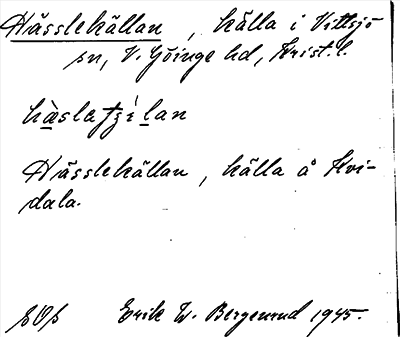 Hässlekällan, källa i Vittsjö
sn, V. Göinge hd, Krist. l.
Hässlekällan, källa å Kvi-
dala.
Erik W. Bergenrud 1945.